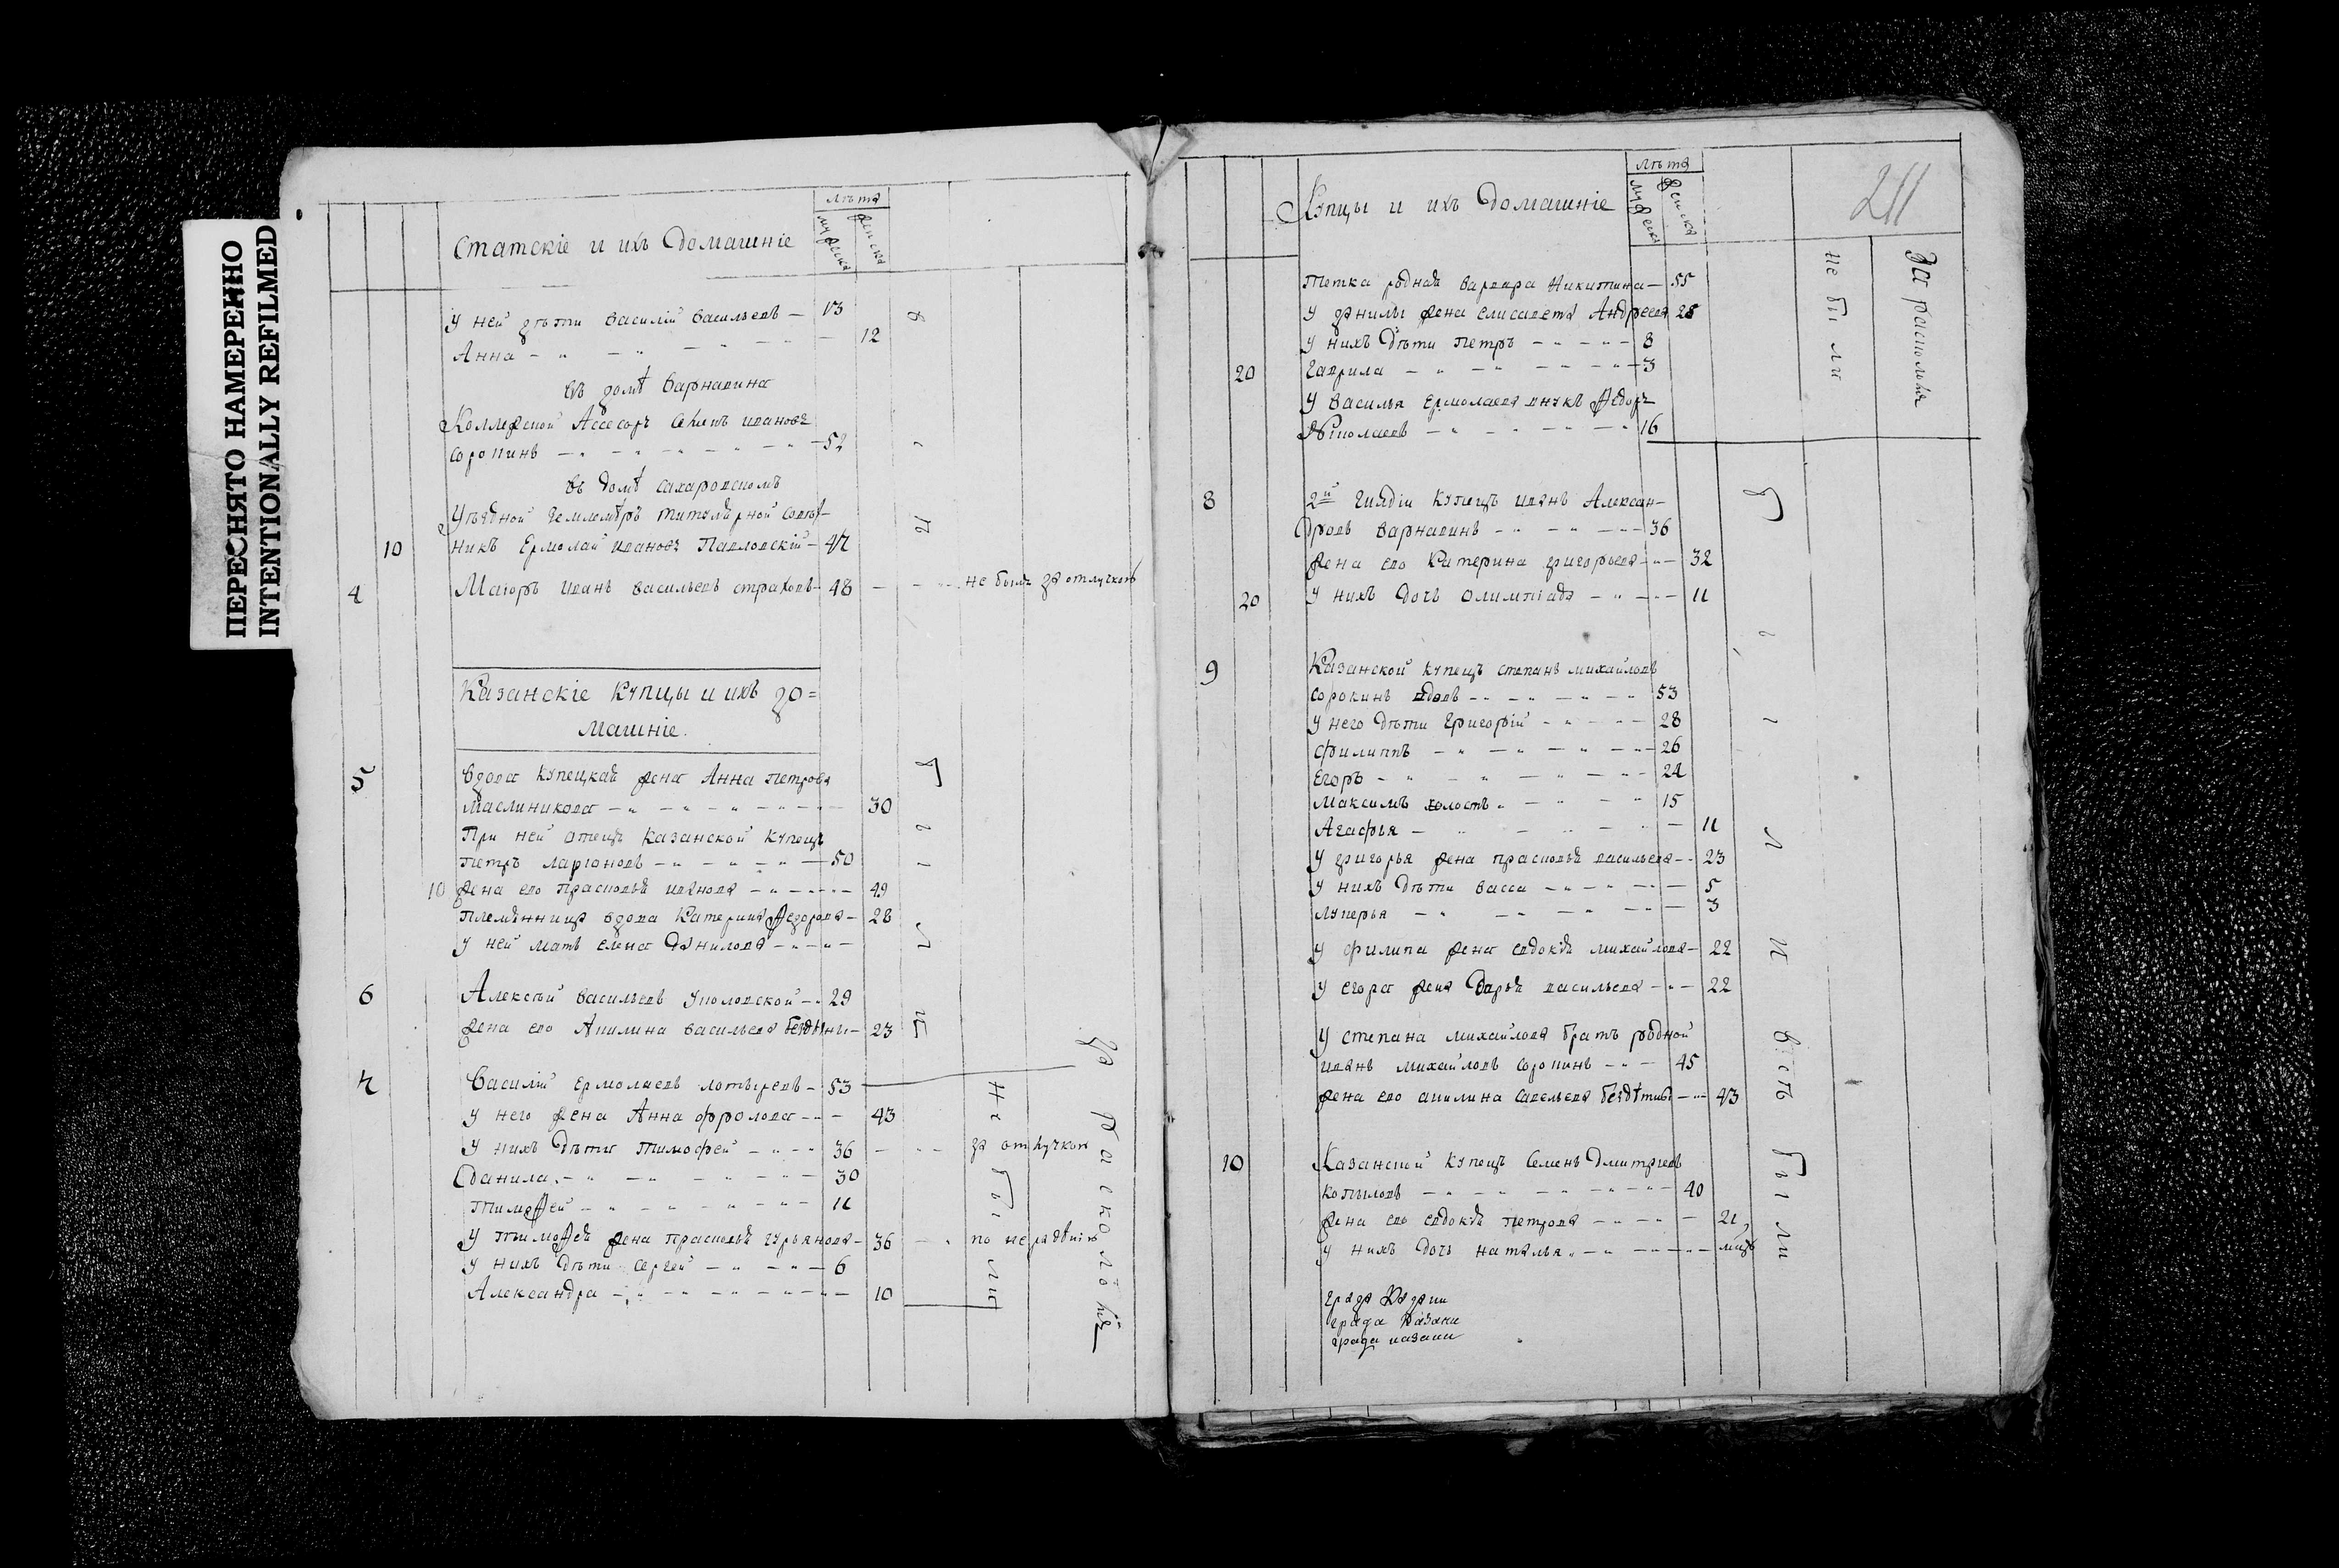 ПЕРЕСНЯТО НАМЕРЕННО
INTENTIONALLY REFILMED
Статскіе и ихъ Домашніе
Лѣта
мужеска
женска
У ней дѣти Василій Васильевъ 13
Анна 12
Въ домѣ Варнавина
Коллежской Ассесоръ Ивановъ
Сорокинъ 52
Въ домѣ Сахаровскомъ
Уѣздной Землемѣръ титулярной Совѣт-
10 никъ Ермолай Ивановъ Павловскій 47
4 Маіоръ Иванъ Васильевъ Страховъ 48 не былъ за отлучкою
Казанскіе Купцы и ихъ до=
машніе.
5 Вдова купецкая жена Анна Петрова
Маслиникова 30
При ней отецъ Казанской купецъ
Петръ Ларіоновъ 50
10 жена его Прасковья Иванова 49
Племянница вдова Катерина Федорова 28
У ней мать Елена Данилова
6 Алексѣй Васильевъ 29
жена его Акилина Васильева 23
7 Василій Ермолаевъ Лотыревъ 53
У него жена Анна Фролова 43
У нихъ Дѣти Тимофей 36 за отлучкою
Данила 30
Тимофей 11
У Тимофея жена Прасковья Гурьянова 36 по нерадѣнію
У нихъ дѣти Сергей 6
Александра 10
не были
за расколомъ
211
Купцы и ихъ Домашніе
Лѣта
мужеска
женска
не были
За расколомъ
Тетка родная Варвара Никитина 55
У Данилы жена Елисавета Андреева 28
У нихъ Дѣти Петръ 8
20 Гаврила 3
У Василья Ермолаева внукъ Федоръ
16
8 2й Гилдіи купецъ Иванъ Алексан-
дровъ Варнавинъ 36
жена его Катерина Григорьева 32
20 У нихъ Дочь Олимпіада 11
9 Казанской купецъ Степанъ Михайловъ
Сорокинъ вдовъ 53
У него Дѣти Григорій 28
Филиппъ 26
Егоръ 24
Максимъ холостъ 15
Агафья 11
У Григорья жена Прасковья Васильева 23
У нихъ Дѣти Васса 5
Лукерья 3
У Филипа жена Евдокія Михайлова 22
У Егора жена Дарья Васильева 22
У Степана Михайлова братъ родной
Иванъ Михайловъ Сорокинъ 45
жена его Акилина Савельева бездѣтны 43
10 Казанской купецъ Семенъ Дмитріевъ
Копыловъ 40
жена его Евдокія Петрова 21
У нихъ дочь Наталья
были
града Казани
града Казани
града казани